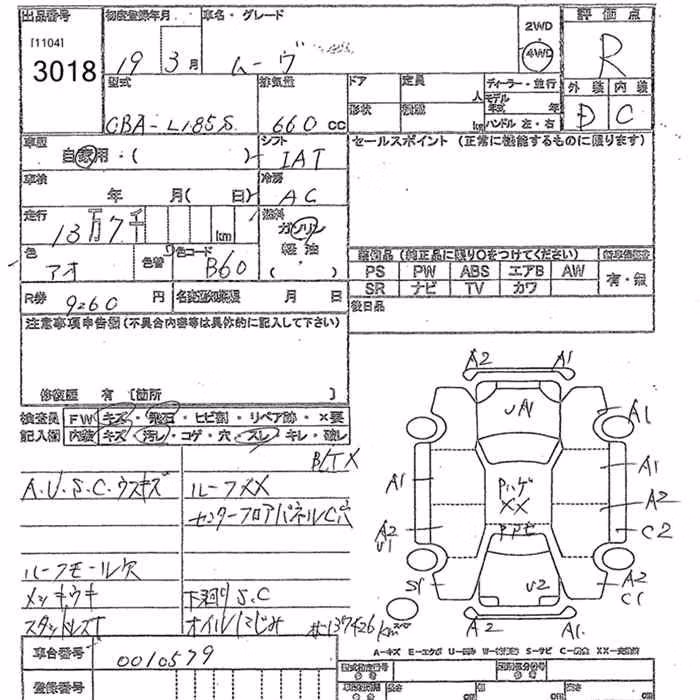 出品番号 初度登録年月 車名・グレード 2WD 評価点
[1104]
3018 19 3月 ムーヴ 4WD R
型式 排気量 ドア 定員 ディーラー・並行 外装 内装
人 モデル
年式 年
CBA-L185S 660 CC 形状 km ハンドル 左・右 D C
車歴 シフト セールスポイント (正常に機能するものに限ります)
自家用・( ) IAT
車検 冷房
年 月( 日) AC
走行 燃料
13万7千 km ガソリン
色 色替 色コード 軽油
アオ B60 ( ・ )
装備品(純正品に限り○をつけてください)
PS PW ABS エアB AW 有・無
SR ナビ TV カワ
R券 9260 円 名変期限 月 日 後日品
注意事項申告欄(不具合内容等は具体的に記入して下さい)
修復歴 有 [箇所 ]
検査員 FW キズ・飛石・ヒビ割・リペア跡・×要
記入欄 内装 キズ・汚レ・コゲ・穴・スレ・キレ・破レ
A2 A1
UA1 A1
A.U.S.C.ウスキズ ルーフXX
A1 A1
XX A2
センターフロアパネルC穴
A2 C2
U1
ルーフモール欠
S1 U2 A2
C1
メッキウキ 下廻りS.C
スタッドレス オイルにじみ #137426km
A2 A1
A=キズ E=エクボ U=凹み W=波 S=サビ C=腐食 XX=交換済
車台番号 0010579
登録番号 長さ 幅 高さ